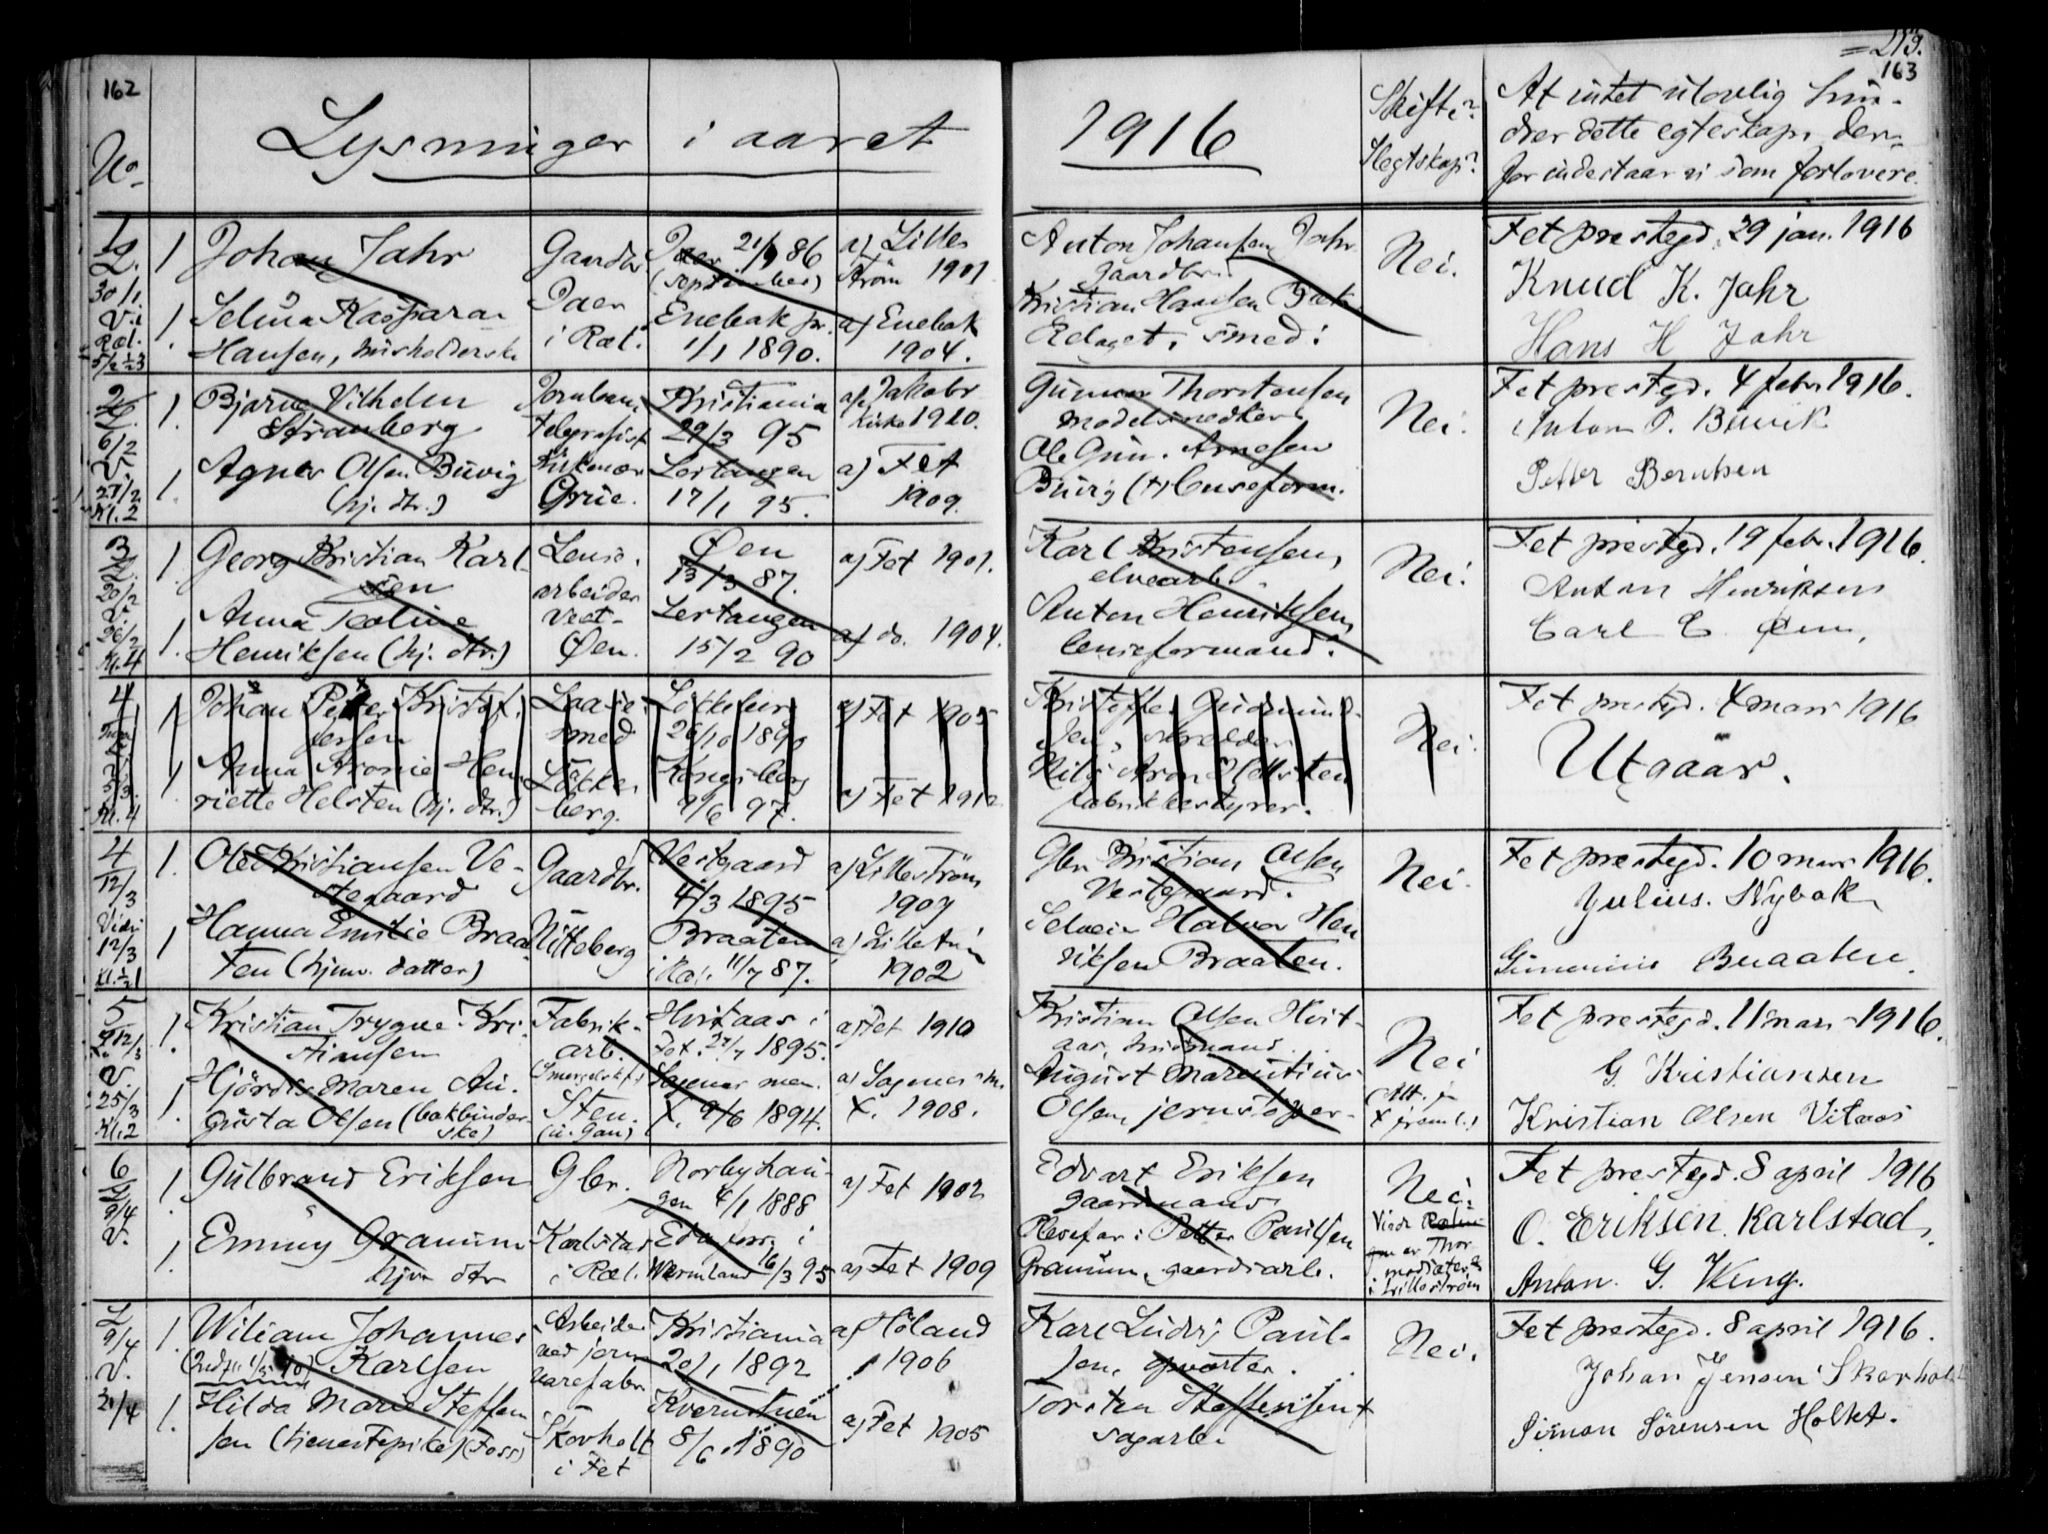 162
= 213.
163
No.
Lysninger i aaret 1916
Skifte?
Slegtskap?
At intet ulovlig hin-
drer dette egteskap der-
for indestaar vi som forlovere.
1
L.
30/1.
V. i
Ræl.
1 Johan Jahr
Gaardbr.
21/9 86
(september)
a) Lille-
strøm 1901
Anton Johansen Jahr
gaardbr.
Nei.
Fet prestegd. 29 jan. 1916
Knud K. Jahr
1. Selma Kaspara
Hansen, husholderske
i Ræl.
Enebak pr.
1/1 1890.
a) Enebak
1904.
Kristian Hansen
smed.
Hans H Jahr
2
L.
6/2
V.
27/2
Kl. 2
1. Bjarne Vilhelm
Stranberg
Jernbane
telegrafist
Kristiania
29/3 95
a) Jakobs
kirke 1910.
Gunnar Thorstensen
modelsnedker
Nei.
Fet prestegd. 4 febr. 1916.
Anton O. Buvik
1. Agnes Olsen Buvig
(hj. dtr.)
Grue.
Lertangen
17/1 95.
a) Fet
1909.
Ole Gun. Arnesen
Buvig (+) lenseform.
Petter Berntsen
3
L.
20/2
V.
26/2
Kl. 4
1. Georg Kristian Karl-
sen
Lense-
arbeider
Øen
13/3 87.
a) Fet 1901.
Karl Kristensen,
elvearb.
Nei.
Fet prestegd. 19 febr. 1916.
Anton Henriksen
1. Anna Teoline
Henriksen (hj. dtr.)
Vest-
Øen.
Lertangen
15/2 90
a) do. 1904.
Anton Henriksen,
lenseformand.
Carl C. Øen,
4
Kl. 4
1 Johan Peter Kristof-
fersen
smed
26/10 1890
a) Fet 1905
Kristoffer Gudmund-
sen, skrædder
Nei.
Fet prestegd. 4 mars 1916
Utgaar.
1 Anna Aronie Hen-
riette Helsten (hj. dtr.)
berg.
Kongsberg
9/6 97.
a) Fet 1912
Nils Aron Helsten
fabrikbestyrer.
4
12/3
Viet
12/3
1. Ole Kristiansen Ve-
stegaard
Gaardbr.
Vestgaard
4/3 1895
a) Lillestrøm
1907
Gbr. Kristian Olsen
Vestegaard.
Nei.
Fet prestegd. 10 mars 1916.
Julius. Nybak
1 Hanna Emilie Braa-
ten (hjemv. datter)
Nitteberg
Braaten
i Ræl. 11/7 87.
a) Lillestrøm
1902
Selveier Halvor Hen
riksen Braaten.
Braaten.
5
12/3
V.
25/3
Kl. 2
1. Kristian Trygve Kri-
stiansen
Fabrik-
arb.
Hvitaas i
Fet. 27/7 1895.
a) Fet 1910
Kristian Olsen Hvit-
aas, husmand.
Nei
Fet prestegd. 11 mars 1916.
G. Kristiansen
1. Hjørdis Maren Au-
gusta Olsen (bokbinder-
ske)
Sten
(i. Gan)
Sagenes men.
X. 9/6 1894.
a) Sagenes m.
X. 1908.
August Marentius
Olsen, jernstøper
Kristian Olsen Vitaas
6
L.
9/4
V.
1. Gulbrand Eriksen
Gbr.
Norbyhau-
gen 4/1 1888
a) Fet 1902
Edvart Eriksen
gaardmand
Nei.
i Lillestrøm
Fet prestegd. 8 april 1916
O. Eriksen Karlstad.
1. Emmy Granum
hjvr dtr
Karlstad
i Ræl.
Eda
Wermland 16/3 95
a) Fet 1909
Plesefar: Petter Paulsen
Granum, gaardsarb.
Anton. G. Weng.
L
9/4
V.
30/4
1. Wiliam Johannes
Karlsen
Arbeider
ved jern-
varefabr.
Kristiania
20/1 1892
a) Høland
1906
Karl Ludvig Paul-
sen,
Nei.
Fet prestegd. 8 april 1916.
Johan Jensen Skarholt
1. Hilda Marie Steffen-
sen (tjenestepike) (Foss)
Skovholt
i Fet
8/6 1890
a) Fet 1905
Torsten Steffensen
sagarb.
Simon Sørensen Holtet.